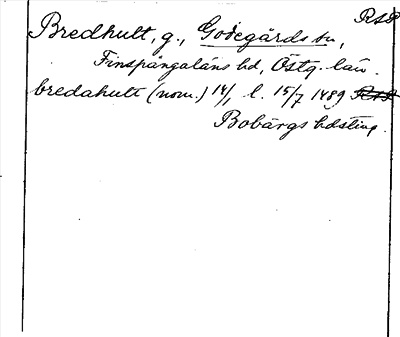 RSP
Bredhult, g., Godegårds sn,
Finspångaläns hd, Östg. län.
bredahult (nom.) 14/1 l. 15/7 1489
Bobärgs hdsting.